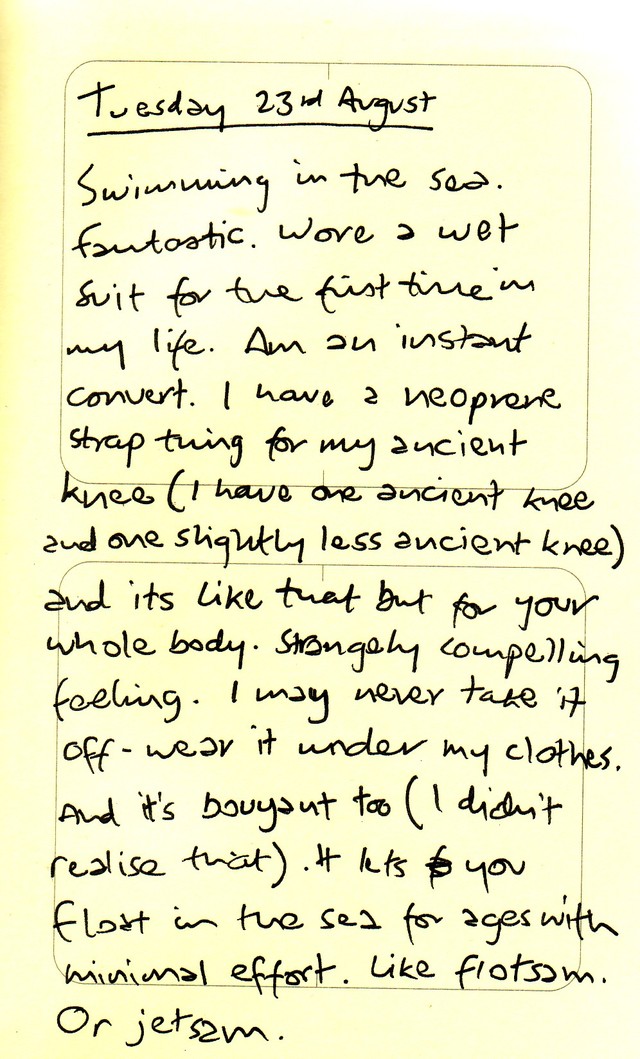 Tuesday 23rd August
Swimming in the sea.
Fantastic. Wore a wet
suit for the first time in
my life. Am an instant
convert. I have a neoprene
strap thing for my ancient
knee (I have one ancient knee
and one slightly less ancient knee)
and its like that but for your
whole body. Strangely compelling
feeling. I may never take it
off - wear it under my clothes.
And it's bouyant too (I didn't
realise that). It lets you
float in the sea for ages with
minimal effort. Like flotsam.
Or jetsam.